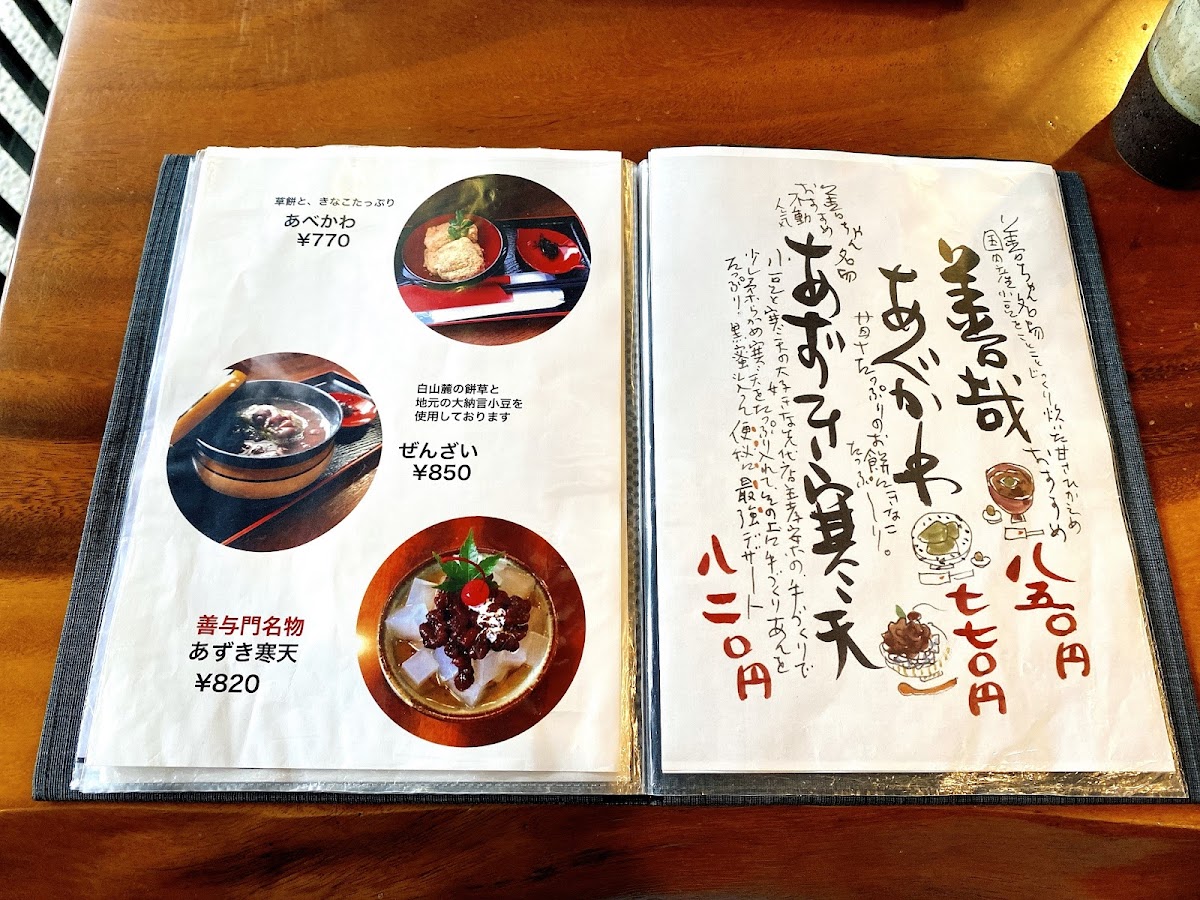 草餅と、きなこたっぷり
あべかわ
¥770
白山麓の餅草と
地元の大納言小豆を
使用しております
ぜんざい
¥850
善与門名物
あずき寒天
¥820
善ちゃん名物
国内産小豆をことことじっくり炊いた甘さひかえめ
おすすめ
善哉
八五〇円
あべかわ
昔ながらのお餅にきなこ
たっぷ〜り。
七七〇円
善ちゃん名物
おすすめ
不動
人気
あずき寒天
小豆と寒天の大好きな先代店主考案の、手づくりで
少しネバらかめ寒天をたっぷり入れて、その上に手づくりあんを
たっぷり!黒蜜入りで便秘に最強デザート
八二〇円